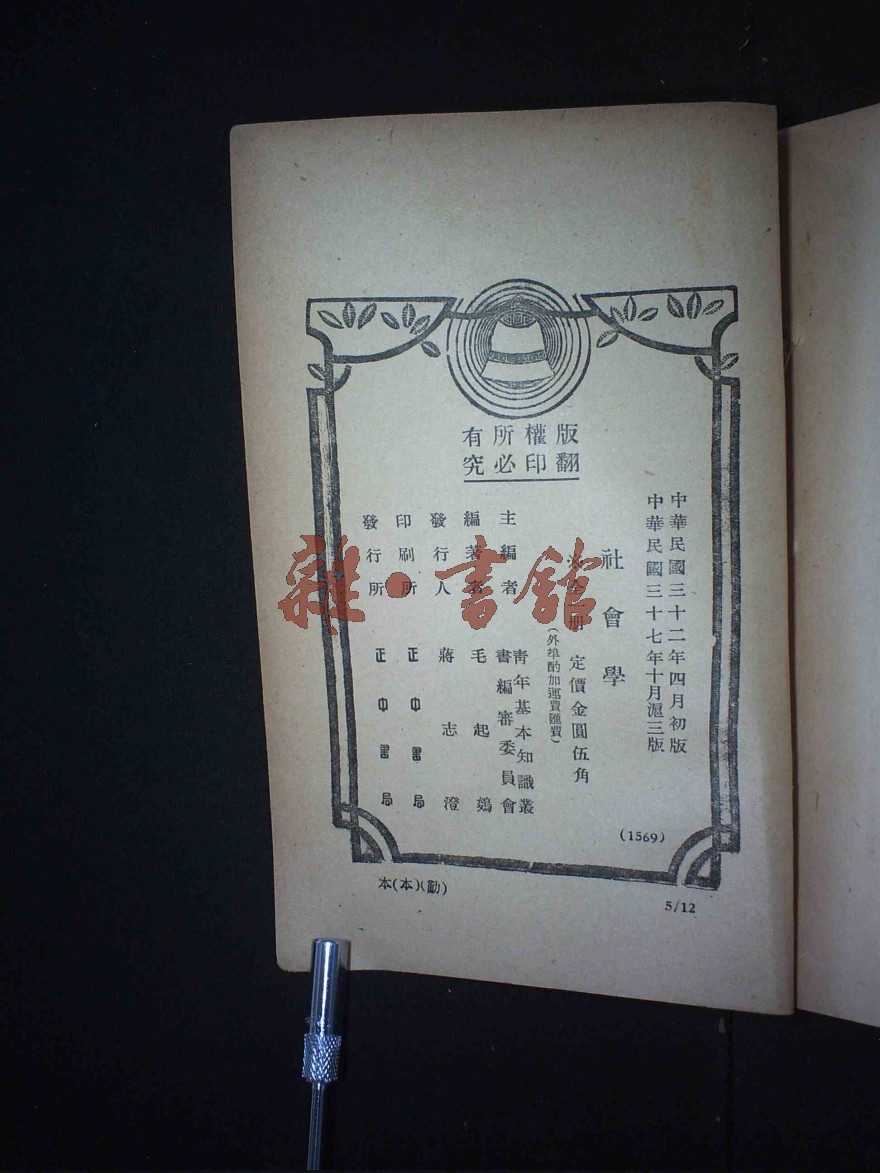 版權所有
翻印必究
中華民國三十二年四月初版
中華民國三十七年十月滬三版
社會學
全一冊 定價金圓伍角
(外埠酌加運費匯費)
主編者 青年基本知識叢書編審委員會
編著者 毛起鵕
發行人 蔣志澄
印刷所 正中書局
發行所 正中書局
(1569)
本(本)(勤)
5/12
雜·書館